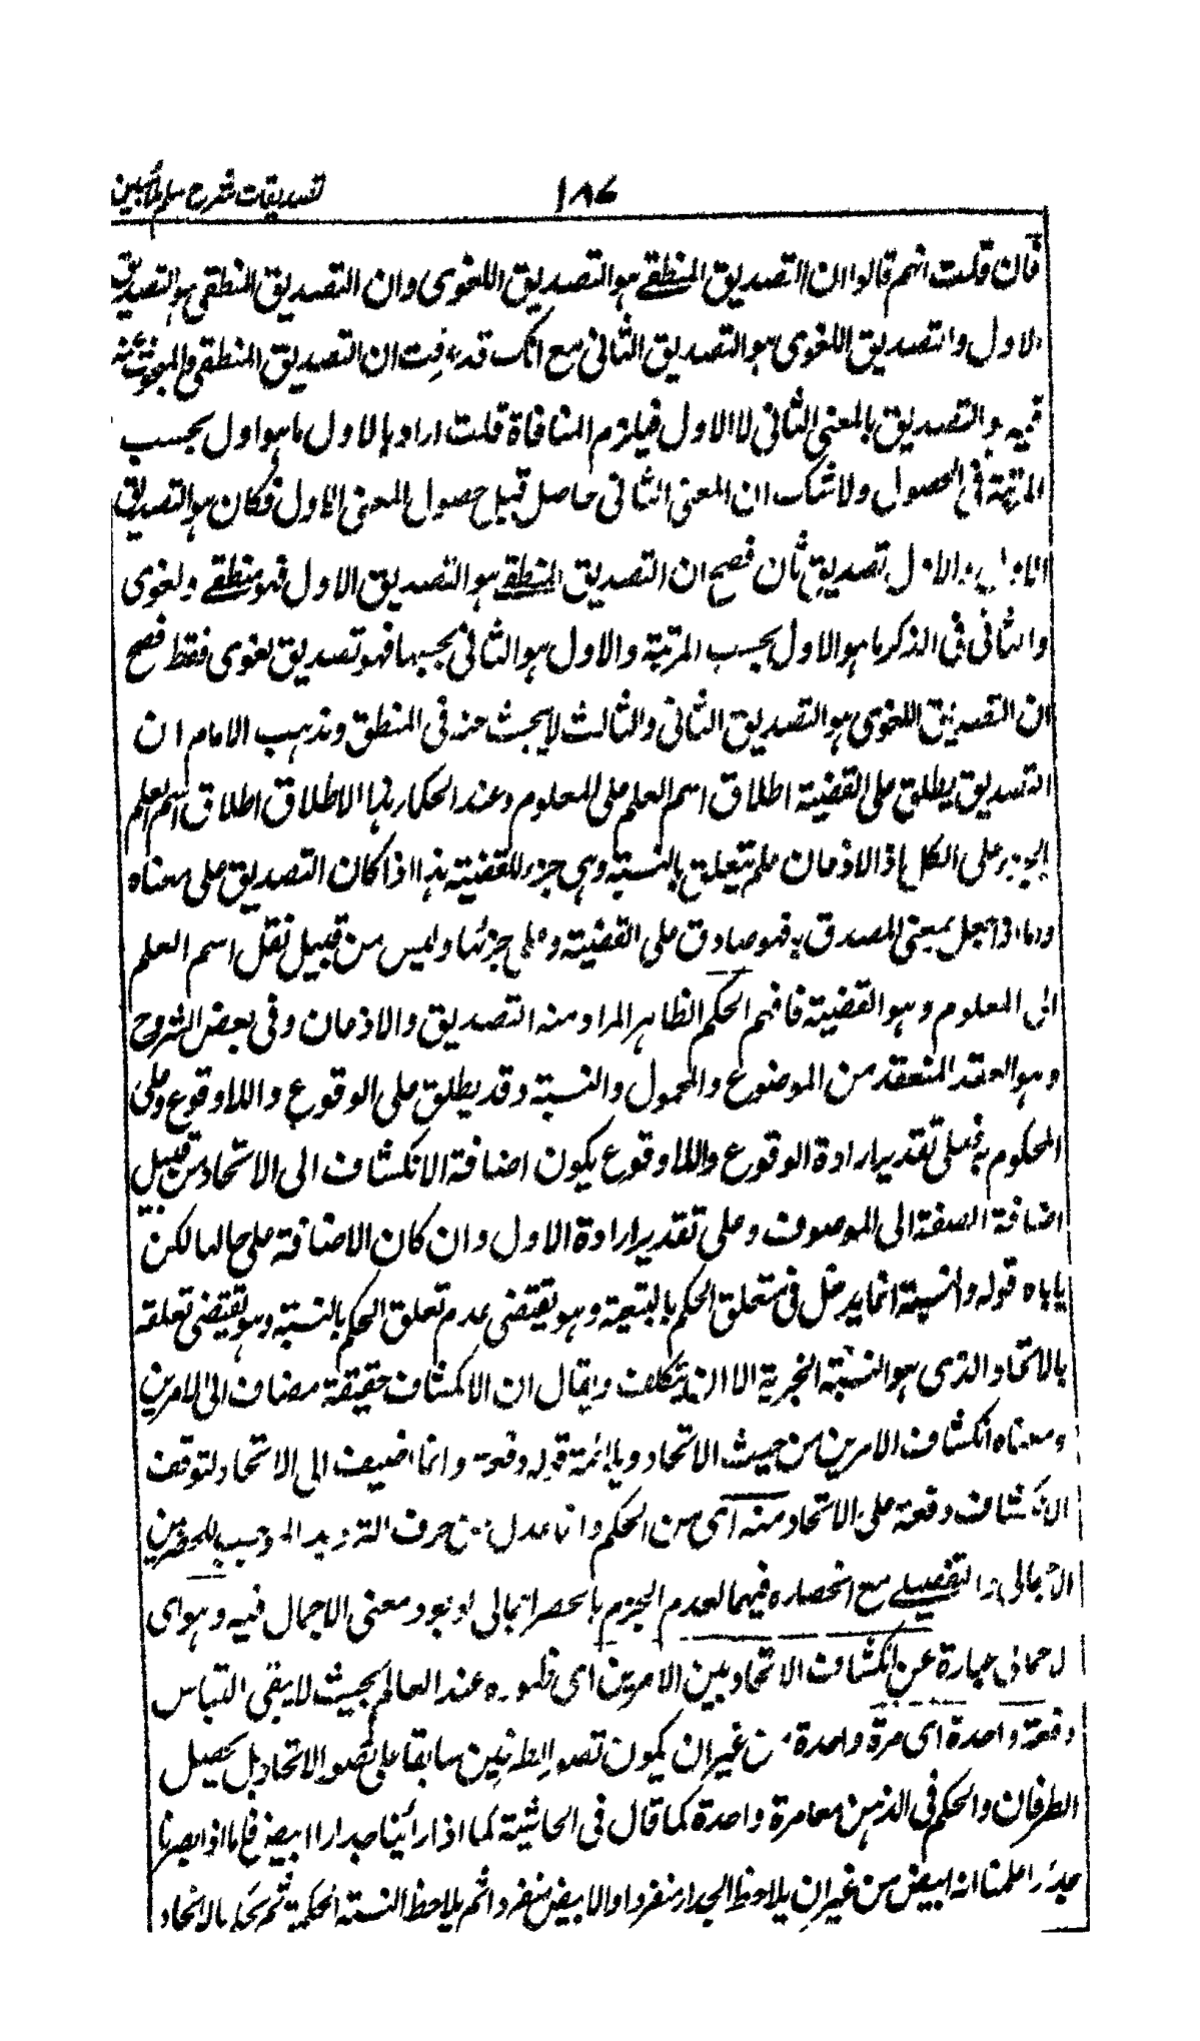 تصديقات شرح سلم لملا مبين
١٨٧
فان قلت انهم قالوا ان التصديق المنطقے هو التصديق اللغوى وان التصديق المنطقى هو التصديق
الاول والتصديق اللغوى هو التصديق الثانى مع انك قد عرفت ان التصديق المنطقى والمبحوث عنه
فيه هو التصديق بالمعنى الثانى لا الاول فيلزم المنافاة قلت ارادوا بالاول ما هو اول بحسب
المرتبة فى الحصول ولا شك ان المعنى الثانى حاصل قبل حصول المعنى الاول فكان هو التصديق
الاول والاول تصديق ثان فصح ان التصديق المنطقے هو التصديق الاول فهو منطقے ولغوى
والثانى فى الذكر ما هو الاول بحسب المرتبة والاول هو الثانى بحسبها فهو تصديق لغوى فقط فصح
ان التصديق اللغوى هو التصديق الثانى والثالث لا يبحث عنه فى المنطق ومذهب الامام ان
التصديق يطلق على القضية اطلاق اسم العلم على المعلوم وعند الحكماء هذا الاطلاق اطلاق اسم العلم
الجزء على الكل اذ الاذعان علم يتعلق بالنسبة وهى جزء للقضية هذا اذا كان التصديق على معناه
واما اذا جعل بمعنى المصدق به فهو صادق على القضية وعلى جزئها وليس من قبيل نقل اسم العلم
الى المعلوم وهو القضية فافهم الحكم الظاهر المراد منه التصديق والاذعان وفى بعض الشروح
وهو العقد المنعقد من الموضوع والمحمول والنسبة وقد يطلق على الوقوع واللاوقوع وعلى
المحكوم به فعلى تقدير ارادة الوقوع واللاوقوع يكون اضافة الانكشاف الى الاتحاد من قبيل
اضافة الصفة الى الموصوف وعلى تقدير ارادة الاول وان كان الاضافة على حالها لكن
ياباه قوله والنسبة انما يدخل فى متعلق الحكم بالتبعية وهو يقتضى عدم تعلق الحكم بالنسبة وهو يقتضى تعلقه
بالاتحاد الذى هو النسبة الخبرية الا ان يتكلف ويقال ان الانكشاف حقيقة مضاف الى الامرين
ومعناه انكشاف الامرين من حيث الاتحاد ويلائمه قوله دفعة وانما اضيف الى الاتحاد لتوقف
الانكشاف دفعة على الاتحاد منه اى من الحكم وانما عدل عن حرف الترديد الموجب للحصر بين
الاجمالى والتفصيلے مع انحصاره فيهما لعدم الجزم بالحصر اجمالى لوجود معنى الاجمال فيه وهو اى
الاجمالى عبارة عن انكشاف الاتحاد بين الامرين اى ظهوره عند العالم بحيث لا يبقى التباس
دفعة واحدة اى مرة واحدة من غير ان يكون تصور الطرفين سابقا على تصور الاتحاد بل يحصل
الطرفان والحكم فى الذهن معا مرة واحدة كما قال فى الحاشية كما اذا رأينا جدارا ابيض فانا اذا ابصرنا
جدارا علمنا انه ابيض من غير ان يلاحظ الجدار منفردا والابيض منفردا ثم يلاحظ النسبة الحكمية ثم نحكم بالاتحاد